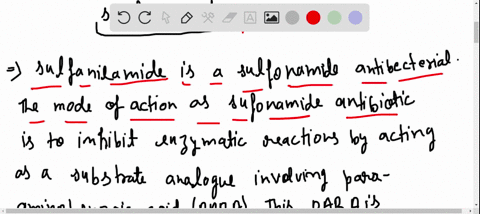 s
=) sulfanilamide is a sulfonamide antibacterial.
The mode of action as sufonamide antibiotic
is to imhibit enzymatic reactions by acting
as a substrate analogue involving para-
This PABA is